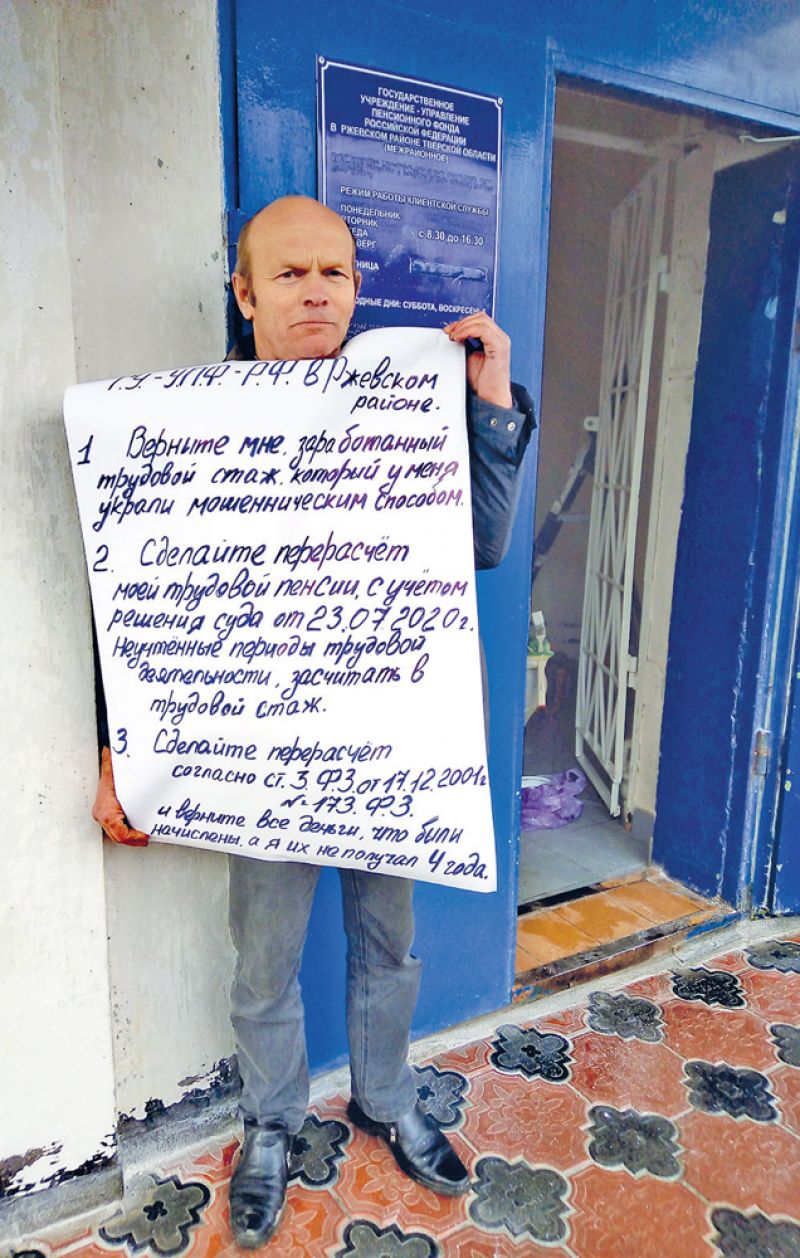 ГОСУДАРСТВЕННОЕ
УЧРЕЖДЕНИЕ - УПРАВЛЕНИЕ
ПЕНСИОННОГО ФОНДА
РОССИЙСКОЙ ФЕДЕРАЦИИ
В РЖЕВСКОМ РАЙОНЕ ТВЕРСКОЙ ОБЛАСТИ
(МЕЖРАЙОННОЕ)
РЕЖИМ РАБОТЫ КЛИЕНТСКОЙ СЛУЖБЫ
ПОНЕДЕЛЬНИК
ВТОРНИК
С 8.30 ДО 16.30
ДНИ: СУББОТА,
Г.У.-У.П.Ф.-Р.Ф. в Ржевском
районе.
1 Верните мне, заработанный
трудовой стаж, который у меня
украли мошенническим способом.
2. Сделайте перерасчёт
моей трудовой пенсии, с учётом
решения суда от 23.07.2020г.
Неучтённые периоды трудовой
деятельности, засчитать в
трудовой стаж.
3. Сделайте перерасчёт
согласно ст. 3. Ф.З. от 17.12.2001г
№ 173. Ф.З.
и верните все деньги, что были
начислены, а я их не получал 4 года.